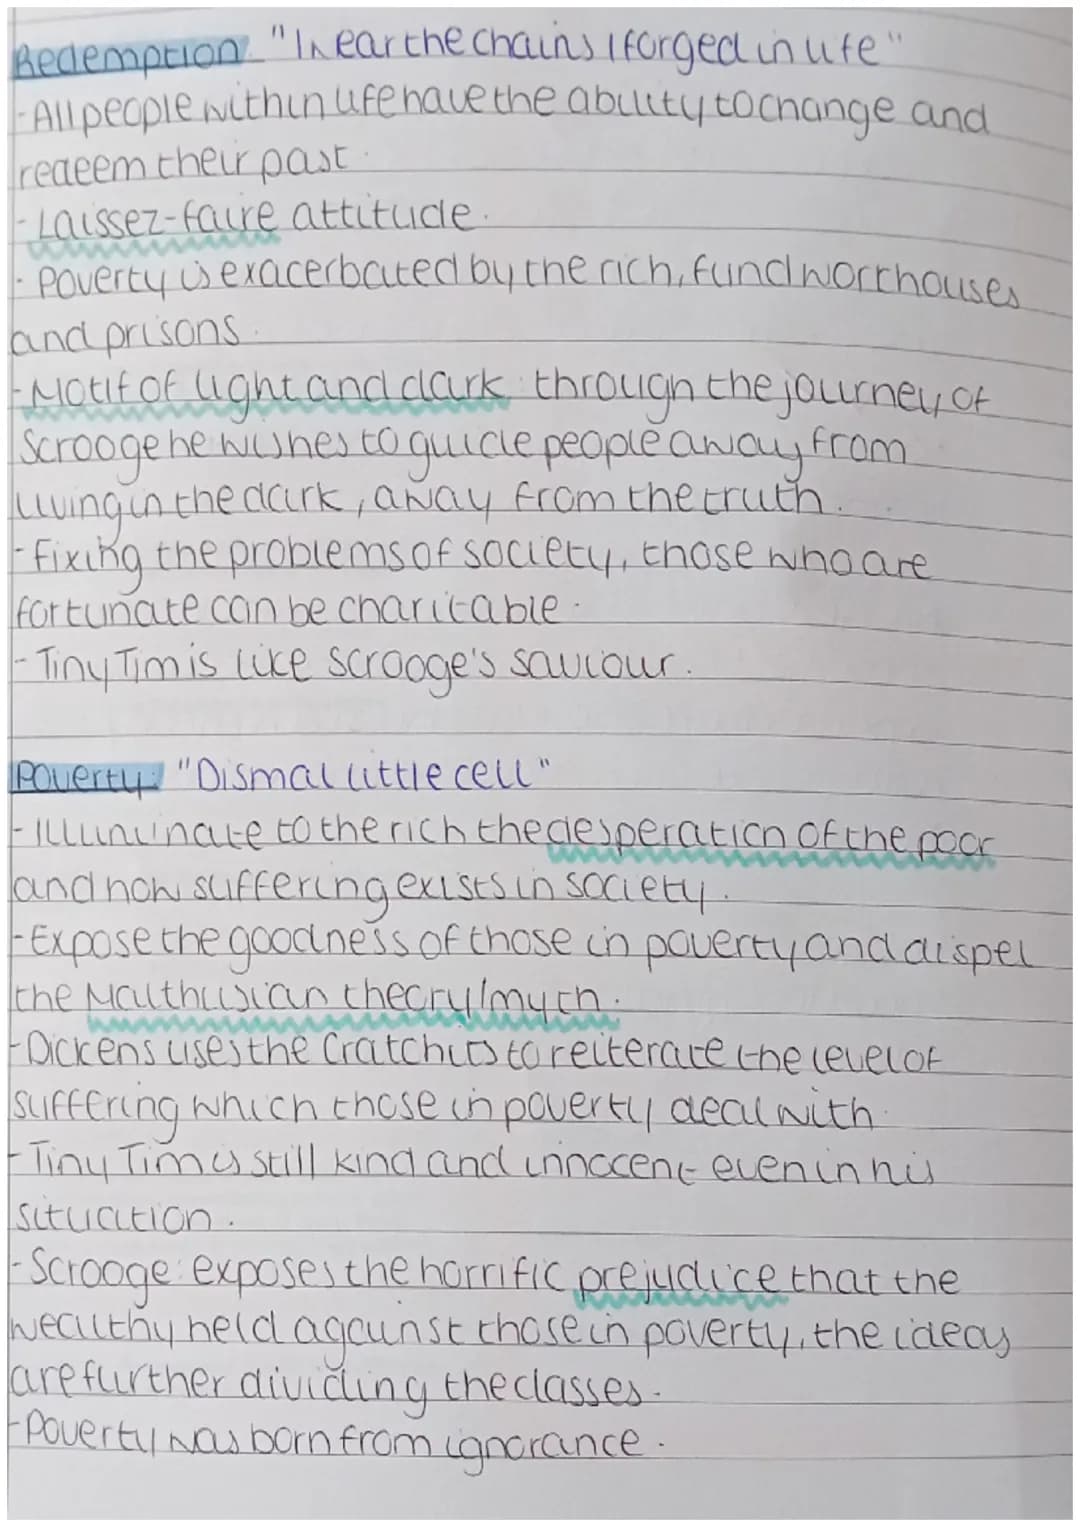 Redemption: "I wear the chains I forged in life"
- All people within life have the ability to change and
redeem their past.
- Laissez-faire attitude.
- Poverty is exacerbated by the rich, fund workhouses
and prisons.
- Motif of light and dark: through the journey of
Scrooge he wishes to guide people away from
living in the dark, away from the truth.
- Fixing the problems of society, those who are
fortunate can be charitable.
- Tiny Tim is like Scrooge's saviour.
Poverty: "Dismal little cell"
- Illuminate to the rich the desperation of the poor
and how suffering exists in society.
- Expose the goodness of those in poverty and dispel
the Malthusian theory/myth.
- Dickens uses the Cratchits to reiterate the level of
suffering which those in poverty deal with.
- Tiny Tim is still kind and innocent even in his
situation.
- Scrooge: exposes the horrific prejudice that the
wealthy held against those in poverty, the ideas
are further dividing the classes.
- Poverty was born from ignorance.